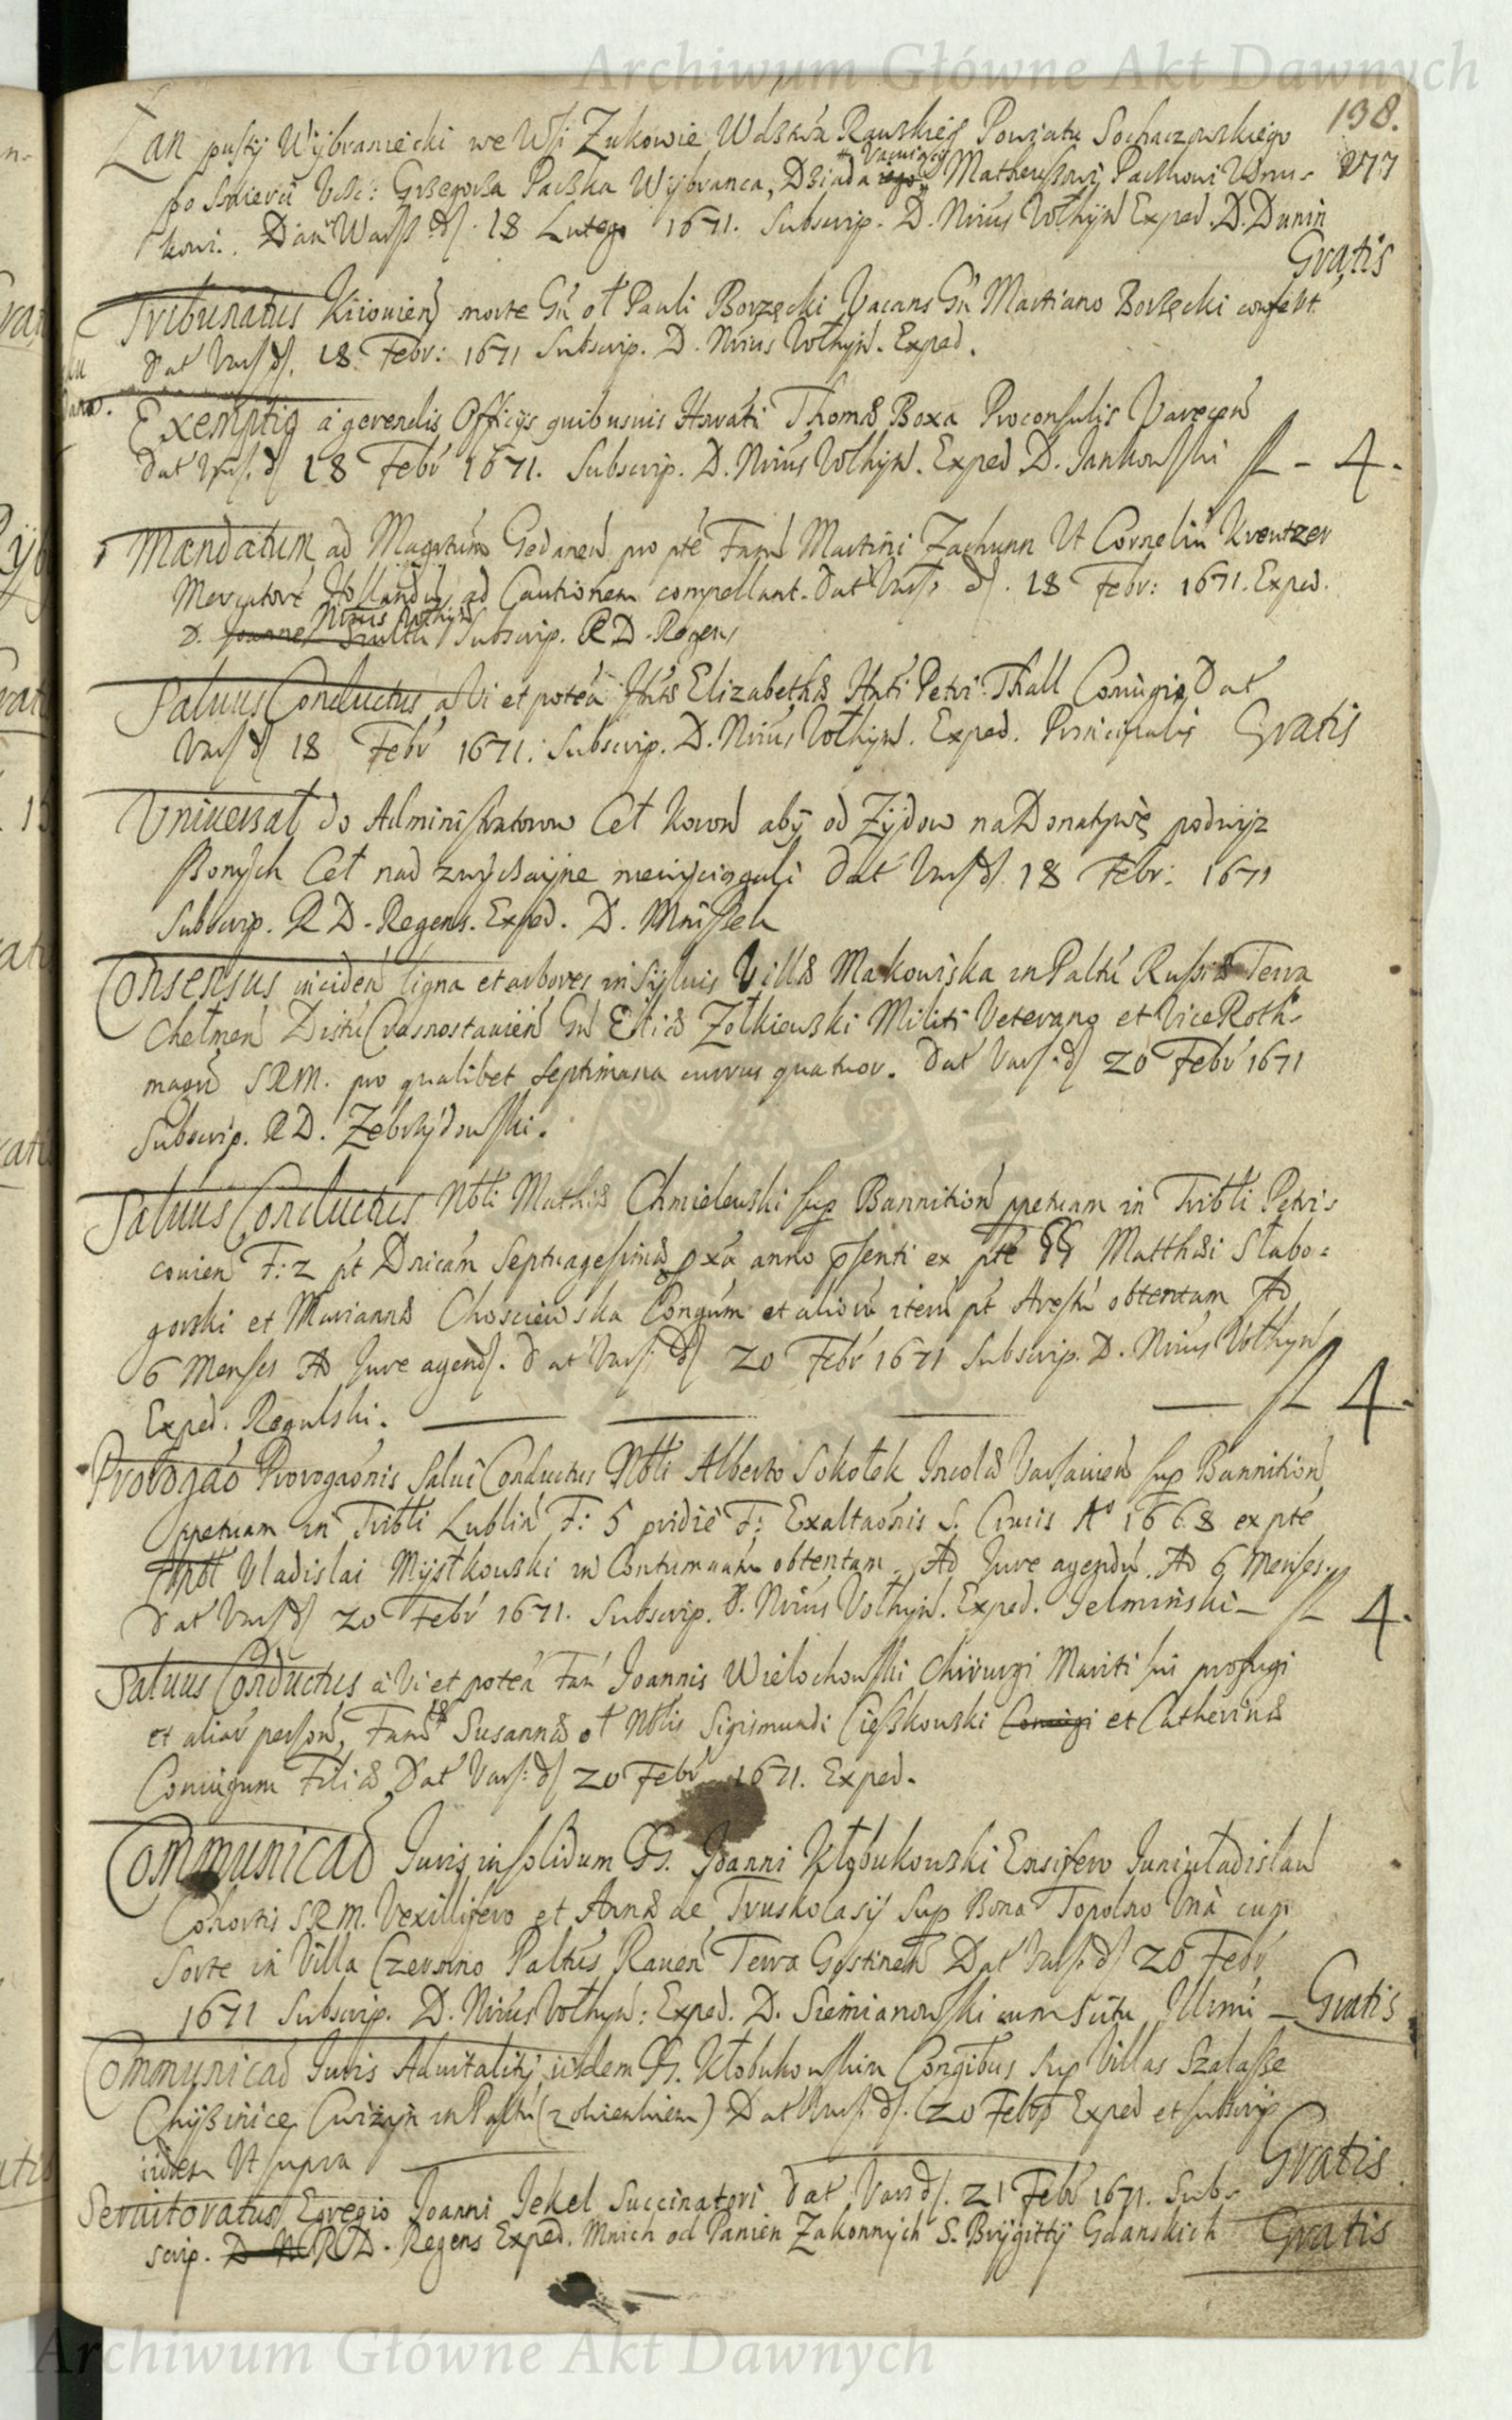 Archiwum Główne Akt Dawnych
138.
Łan pusty Wybraniecki we Wsi Zukowie Wdztwa Rawskieg Powiatu Sochaczewskiego
po Smierci Grzegorza Paczka Wybranca, Dziada iego Vacuiący Matheuszowi Paczkowi Wnu-
kowi. Dan Warss. d. 18 Lutego 1671. Subscrip. D. Nrius Vołhyn Exped. D. Dunin
Gratis
Tribunatus Kiiovien morte Gn ol Pauli Borzęcki Vacans Gn Martiano Borzęcki confert
Dat Vars d. 18 Febr: 1671 Subscrip. D. Nrius Vołhyn. Exped.
Exemptio a gerendis Officijs quibusuis Hnrati Thomæ Boxa Proconsulis Varecen
Dat Vars. d 18 Febr 1671. Subscrip. D. Nrius Vołhyn. Exped D. Jankowski fl - 4.
Mandatum ad Magrtum Gedanen pro pte Fam Martini Zachunn Ut Corneliu Kreutzer
Mercatore Hollandu ad Cautionem compellant. Dat Vars d. 18 Febr: 1671. Exped.
D. Joannes Nrius Vołhyn Subscrip. R D. Regens
Saluus Conductus a Vi et potea Elizabethæ Petri Thall Coniugis Dat
Vars d 18 Febr 1671. Subscrip. D. Nrius Vołhyn. Exped. Principalis Gratis
Vniuersał do Administratorow Ceł Koron aby od Zydow na Donatywę podwyz
szonych Ceł nad zwyczayne niewyciągali Dat Vars d. 18 Febr: 1671
Subscrip. R D. Regens. Exped. D. Mniszek
Consensus inciden ligna et arbores in syluis Villæ Makowiska in Paltu Russiæ Terra
Chełmen Distri Crasnostauien Gn Eliæ Zołkiewski Militi Veterano et Vice Roth-
magro SRM. pro qualibet septimana currus quatuor. Dat Vars. d 20 Febr 1671
Subscrip. R D. Zebrzydowski.
Saluus Conductus Nbli Mathiæ Chmielewski sup Bannition ppetuam in Tribli Petri-
couien F: 2 pt Dnicam Septuagesimæ pxa anno psenti ex pte GG Matthæi Słabo-
gorski et Mariannæ Chosciewska Congum et alioru iteru pt obtentam Ad
6 Menses Ad Jure agend. Dat Vars. d 20 Febr 1671 Subscrip. D. Nrius Vołhyn
Exped. Regulski. fl 4.
Prorogao Prorogaonis Salui Conductus Nbli Alberto Sokołek Incolæ Varsauien sup Bannition
ppetuam in Tribli Lublin F: 5 pridie F: Exaltaonis S. Crucis Ao 1668 ex pte
Vladislai Mystkowski in Contumaciam obtentam. Ad Jure agendu. Ad 6 Menses.
Dat Vars d 20 Febr 1671. Subscrip. D. Nrius Vołhyn. Exped. Jelminski - fl 4.
Saluus Conductus a Vi et potea Fam Joannis Wielochowski Chirurgi Mariti sui profugi
et aliar person, Famæ Susannæ ol Nblis Sigismundi Cieszkowski Coniugi et Catherinæ
Coniugum Filiæ Dat Vars: d 20 Febr 1671. Exped.
Communicao Juris insolidum GG. Joanni Kłobukowski Ensifero Juniuladislau
Cohortis SRM. Vexillifero et Annæ de Truskolasy Sup Bona Topolno Una cum
Sorte in Villa Czermno Paltus Rauen Terra Gostinen Dat Vars. d 20 Febr
1671 Subscrip. D. Nrius Vołhyn: Exped. D. Siemianowski cum scitu Illrmi - Gratis
Communicao Juris Aduitalitij iisdem GG. Kłobukowskim Congibus sup Villas Szałasse
Chyszinice Cwizyn in Paltu Dat Vars. d. 20 Febr Exped et subscrip
iidem Ut supra Gratis
Seruitoratus Egregio Joanni Jekel Succinatori Dat Vars d. 21 Febr 1671. Sub-
scrip. R D. Regens Exped. Mnich od Panien Zakonnych S. Brygitty Gdanskich Gratis
Archiwum Główne Akt Dawnych